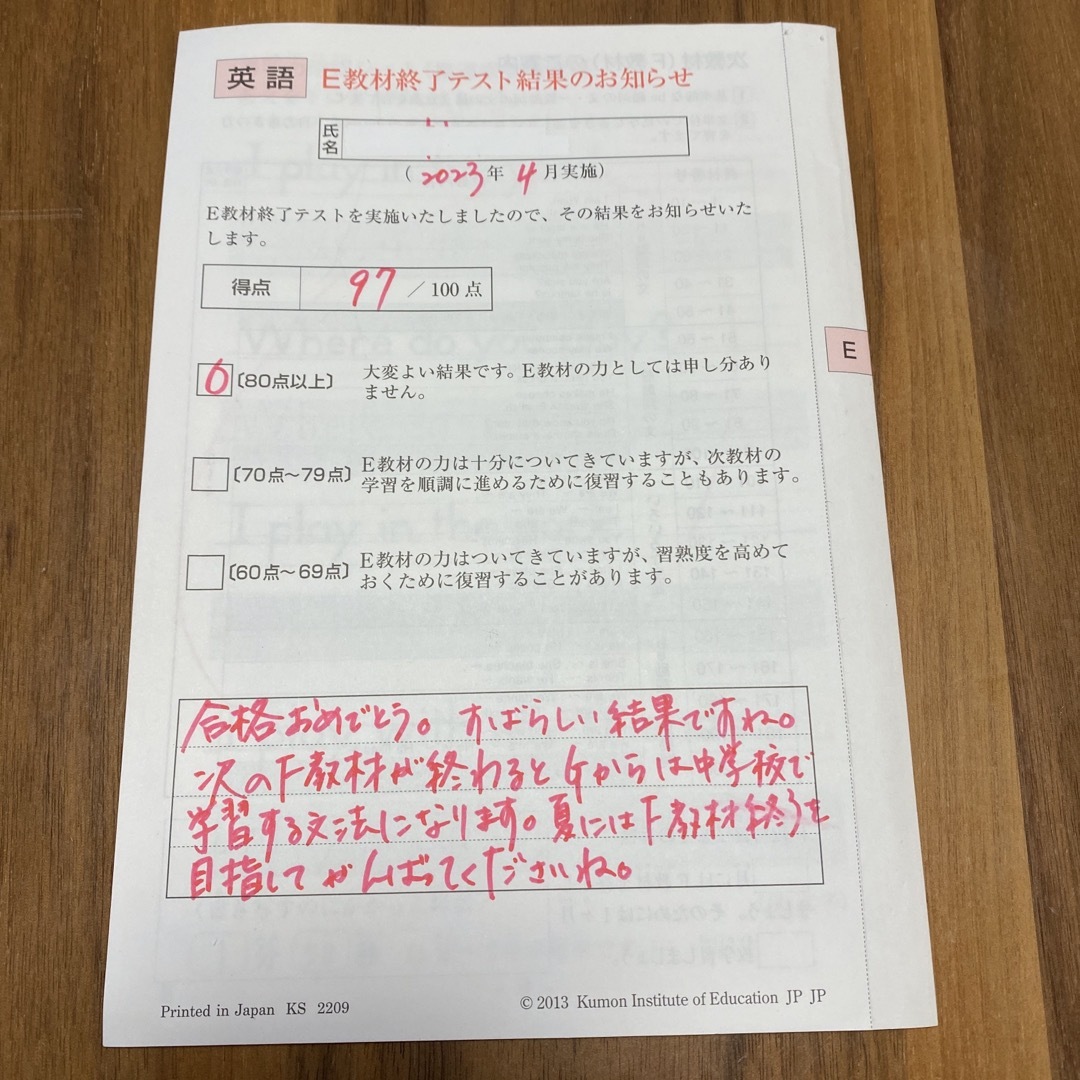 英語 E教材終了テスト結果のお知らせ
氏名
(2023年 4月実施)
E教材終了テストを実施いたしましたので、その結果をお知らせいた
します。
得点 97 / 100 点
0 〔80点以上〕 大変よい結果です。E教材の力としては申し分あり
ません。
E
〔70点～79点〕 E教材の力は十分についてきていますが、次教材の
学習を順調に進めるために復習することもあります。
〔60点～69点〕 E教材の力はついてきていますが、習熟度を高めて
おくために復習することがあります。
合格おめでとう。すばらしい結果ですね。
次のF教材が終わるとGからは中学校で
学習する文法になります。夏にはF教材終了を
目指してがんばってくださいね。
Printed in Japan KS 2209
© 2013 Kumon Institute of Education JP JP